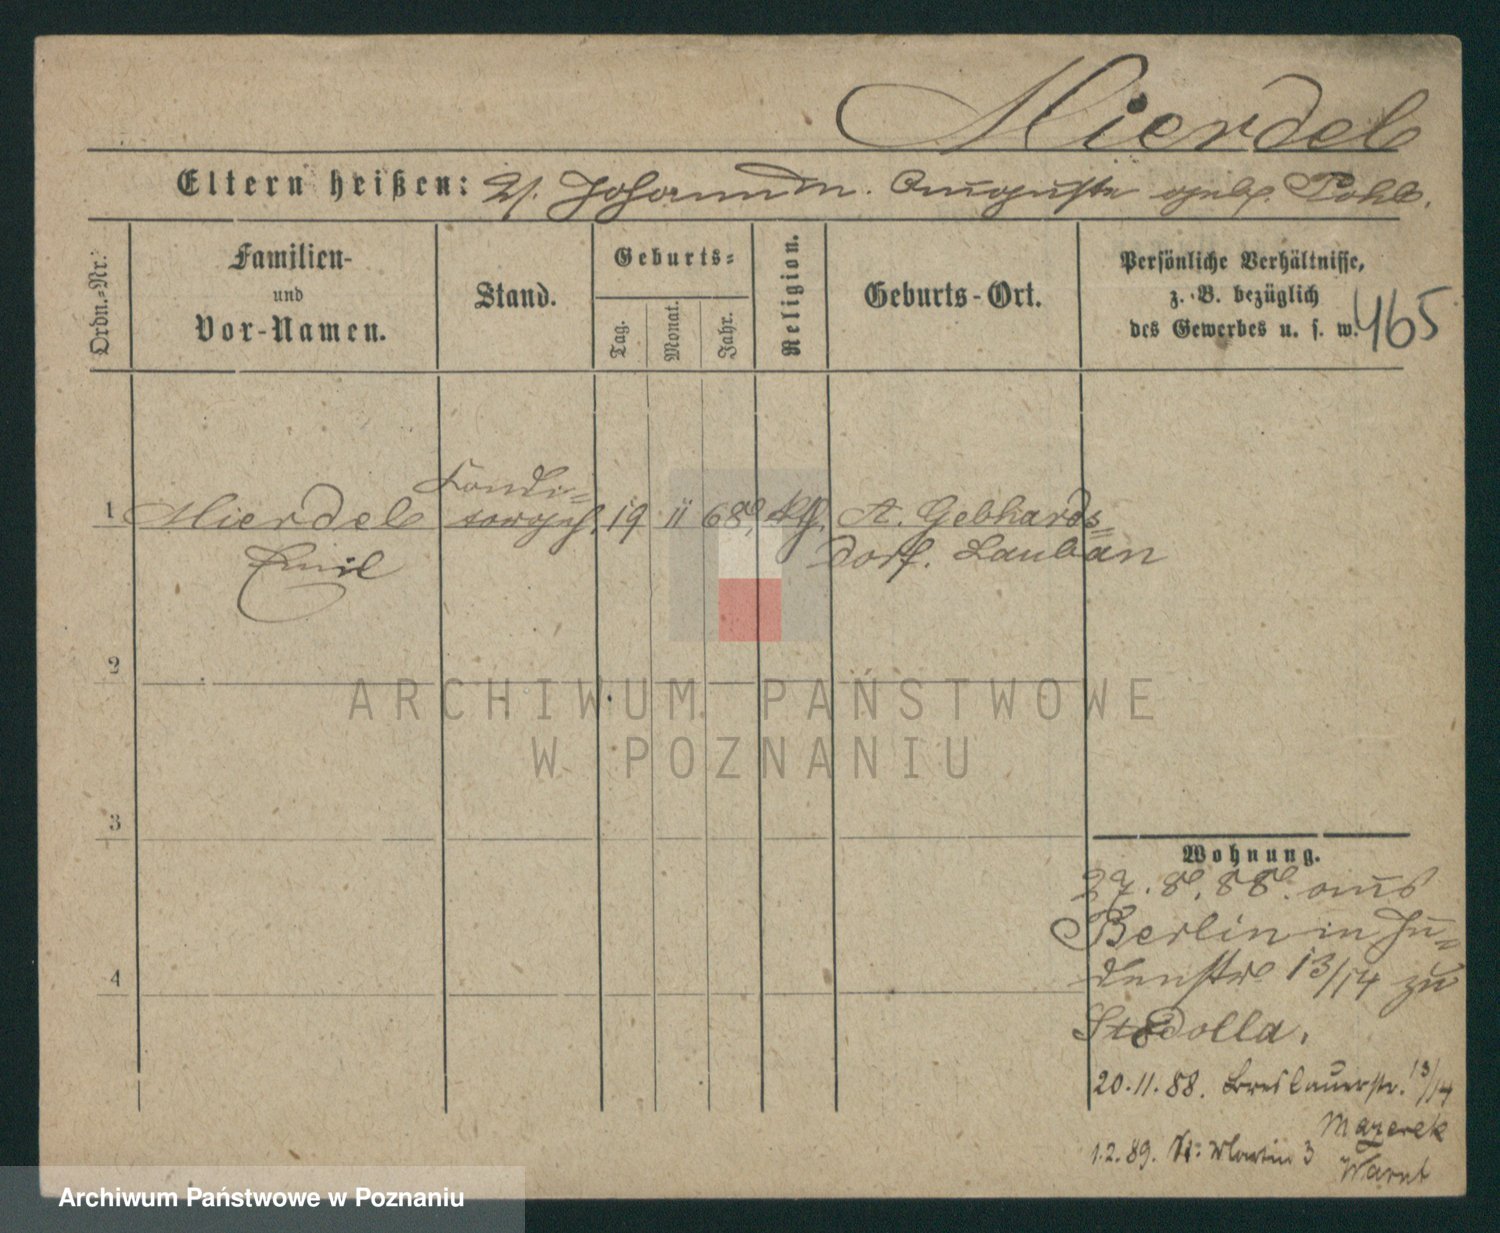 Mierdel
Eltern heißen: Johann u. Auguste geb. Pohl.
Ordn.-Nr.
Familien-
und
Vor-Namen.
Stand.
Geburts-
Tag.
Monat.
Jahr.
Religion.
Geburts-Ort.
Persönliche Verhältnisse,
z. B. bezüglich
des Gewerbes u. s. w.
465
1
Mierdel
Emil
Condi-
torgeh.
19
11
68,
A. Gebhards-
dorf. Lauban
2
3
4
Wohnung.
27. 8. 88. aus
Berlin in Ju-
denstr 13/14 zu
Stedolla.
20.11.88. Breslauerstr. 13/14
Mazerek
1.2.89. St: Martin 3
Warnt
ARCHIWUM PAŃSTWOWE
W POZNANIU
Archiwum Państwowe w Poznaniu